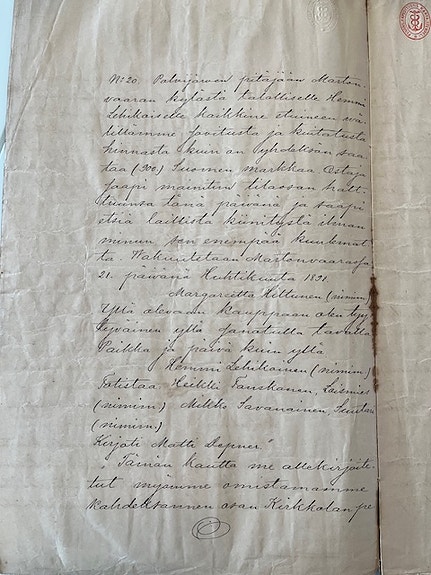 No 20. Polvijärven pitäjään Marton-
vaaran kylästä talolliselle Hemmi
Lehikaiselle kaikkine etuneen vä-
littämme sovitusta ja kuitatusta
hinnasta kuin on yhdeksän saa-
taa (900) Suomen markkaa Ostaja
saapi mainitun tilaosan halt-
tuunsa tänä päivänä ja saapi
etsiä laillista kiinnitystä ilman
minun sen enempää kuulemat-
ta. Vakuutetaan Martonvaarassa
21. päivänä Huhtikuuta 1891.
Margareetta Kiltunen (nimim)
Yllä olevaan kauppaan olen tyy-
tyväinen yllä sanotulla tavalla
Paikka ja päivä kuin yllä
Hemmi Lehikainen (nimim)
Totistaa, Heikki Tanskanen, Loismies
(nimim) Mikko Savanainen,
(nimim.)
Kirjoti Matti Depner."
"Tämän kautta me allekirjoite-
tut myymme omistamamme
kahdeksannen osan Kirkkolan pe